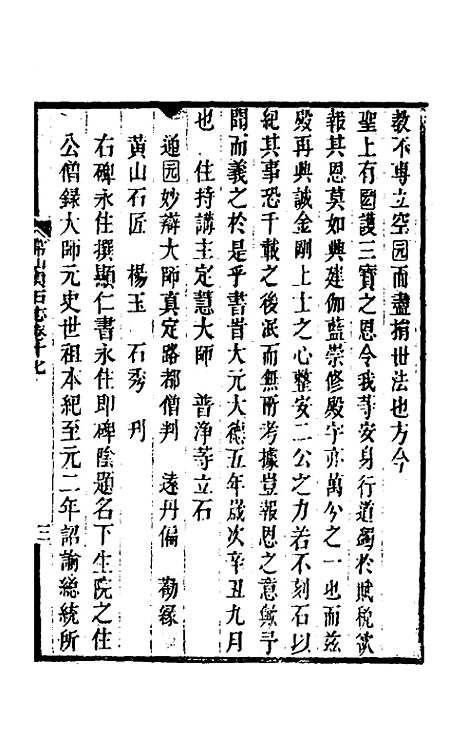 教不專立空园而盡捐世法也方今
聖上有圀護三寶之恩令我等安身行道蠲於賦稅欲
報其恩莫如興建伽藍崇修殿宇亦萬分之一也而茲
殿再興誠金剛上士之心整安二公之力若不刻石以
紀其事恐千載之後泯而無所考據豈報恩之意歟予
聞而義之於是乎書旹大元大德五年歲次辛丑九月
也　住持講主定慧大師　普淨等立石
通园妙辯大師真定路都僧判　遠丹偏　勸緣
黃山石匠　楊玉　石秀　刋
右碑永住撰顯仁書永住即碑陰題名下生院之住
公僧録大師元史世祖本紀至元二年詔諭總統所
常山貞石志卷十七
三